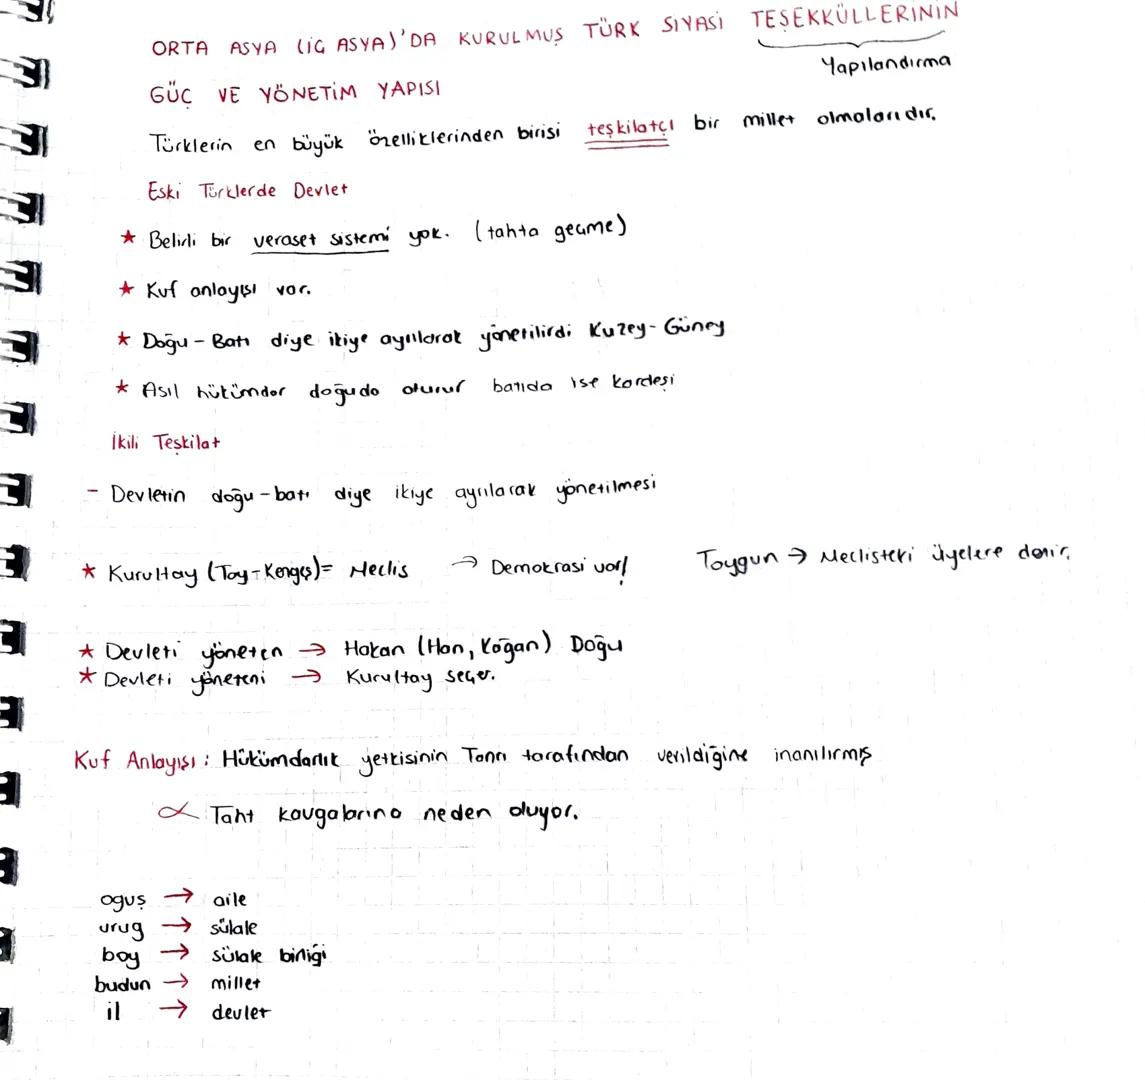 ORTA ASYA (İÇ ASYA)'DA KURULMUŞ TÜRK SİYASİ TEŞEKKÜLLERİNİN
Yapılandırma
GÜÇ VE YÖNETİM YAPISI
Türklerin en büyük özelliklerinden birisi teşkilatçı bir millet olmalarıdır.
Eski Türklerde Devlet
★ Belirli bir veraset sistemi yok. (tahta geçme)
★ Kut anlayışı var.
★ Doğu - Batı diye ikiye ayrılarak yönetilirdi Kuzey - Güney
★ Asıl hükümdar doğuda oturur batıda ise kardeşi
İkili Teşkilat
- Devletin doğu - batı diye ikiye ayrılarak yönetilmesi
★ Kurultay (Toy - Kengeş) = Meclis → Demokrasi var! Toygun → Meclisteki üyelere denir.
★ Devleti yöneten → Hakan (Han, Kağan) Doğu
★ Devleti yöneteni → Kurultay seçer.
Kut Anlayışı : Hükümdarlık yetkisinin Tanrı tarafından verildiğine inanılırmış
Taht kavgalarına neden oluyor.
oguş → aile
urug → sülale
boy → sülale birliği
budun → millet
il → devlet